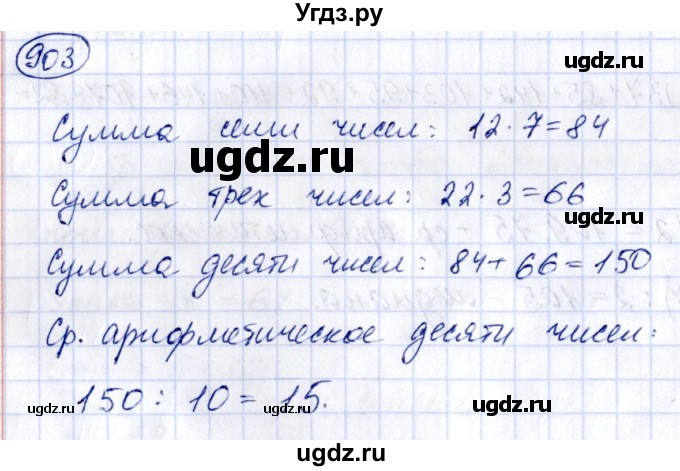 Угдз.ру
903
ugdz.ru
Сумма семи чисел: 12·7=84
ugdz.ru
Сумма трех чисел: 22·3=66
Сумма десяти чисел: 84+66=150
ugdz.ru
Ср. арифметическое десяти чисел:
150 : 10 = 15.
ugdz.ru ugdz.ru ugdz.ru